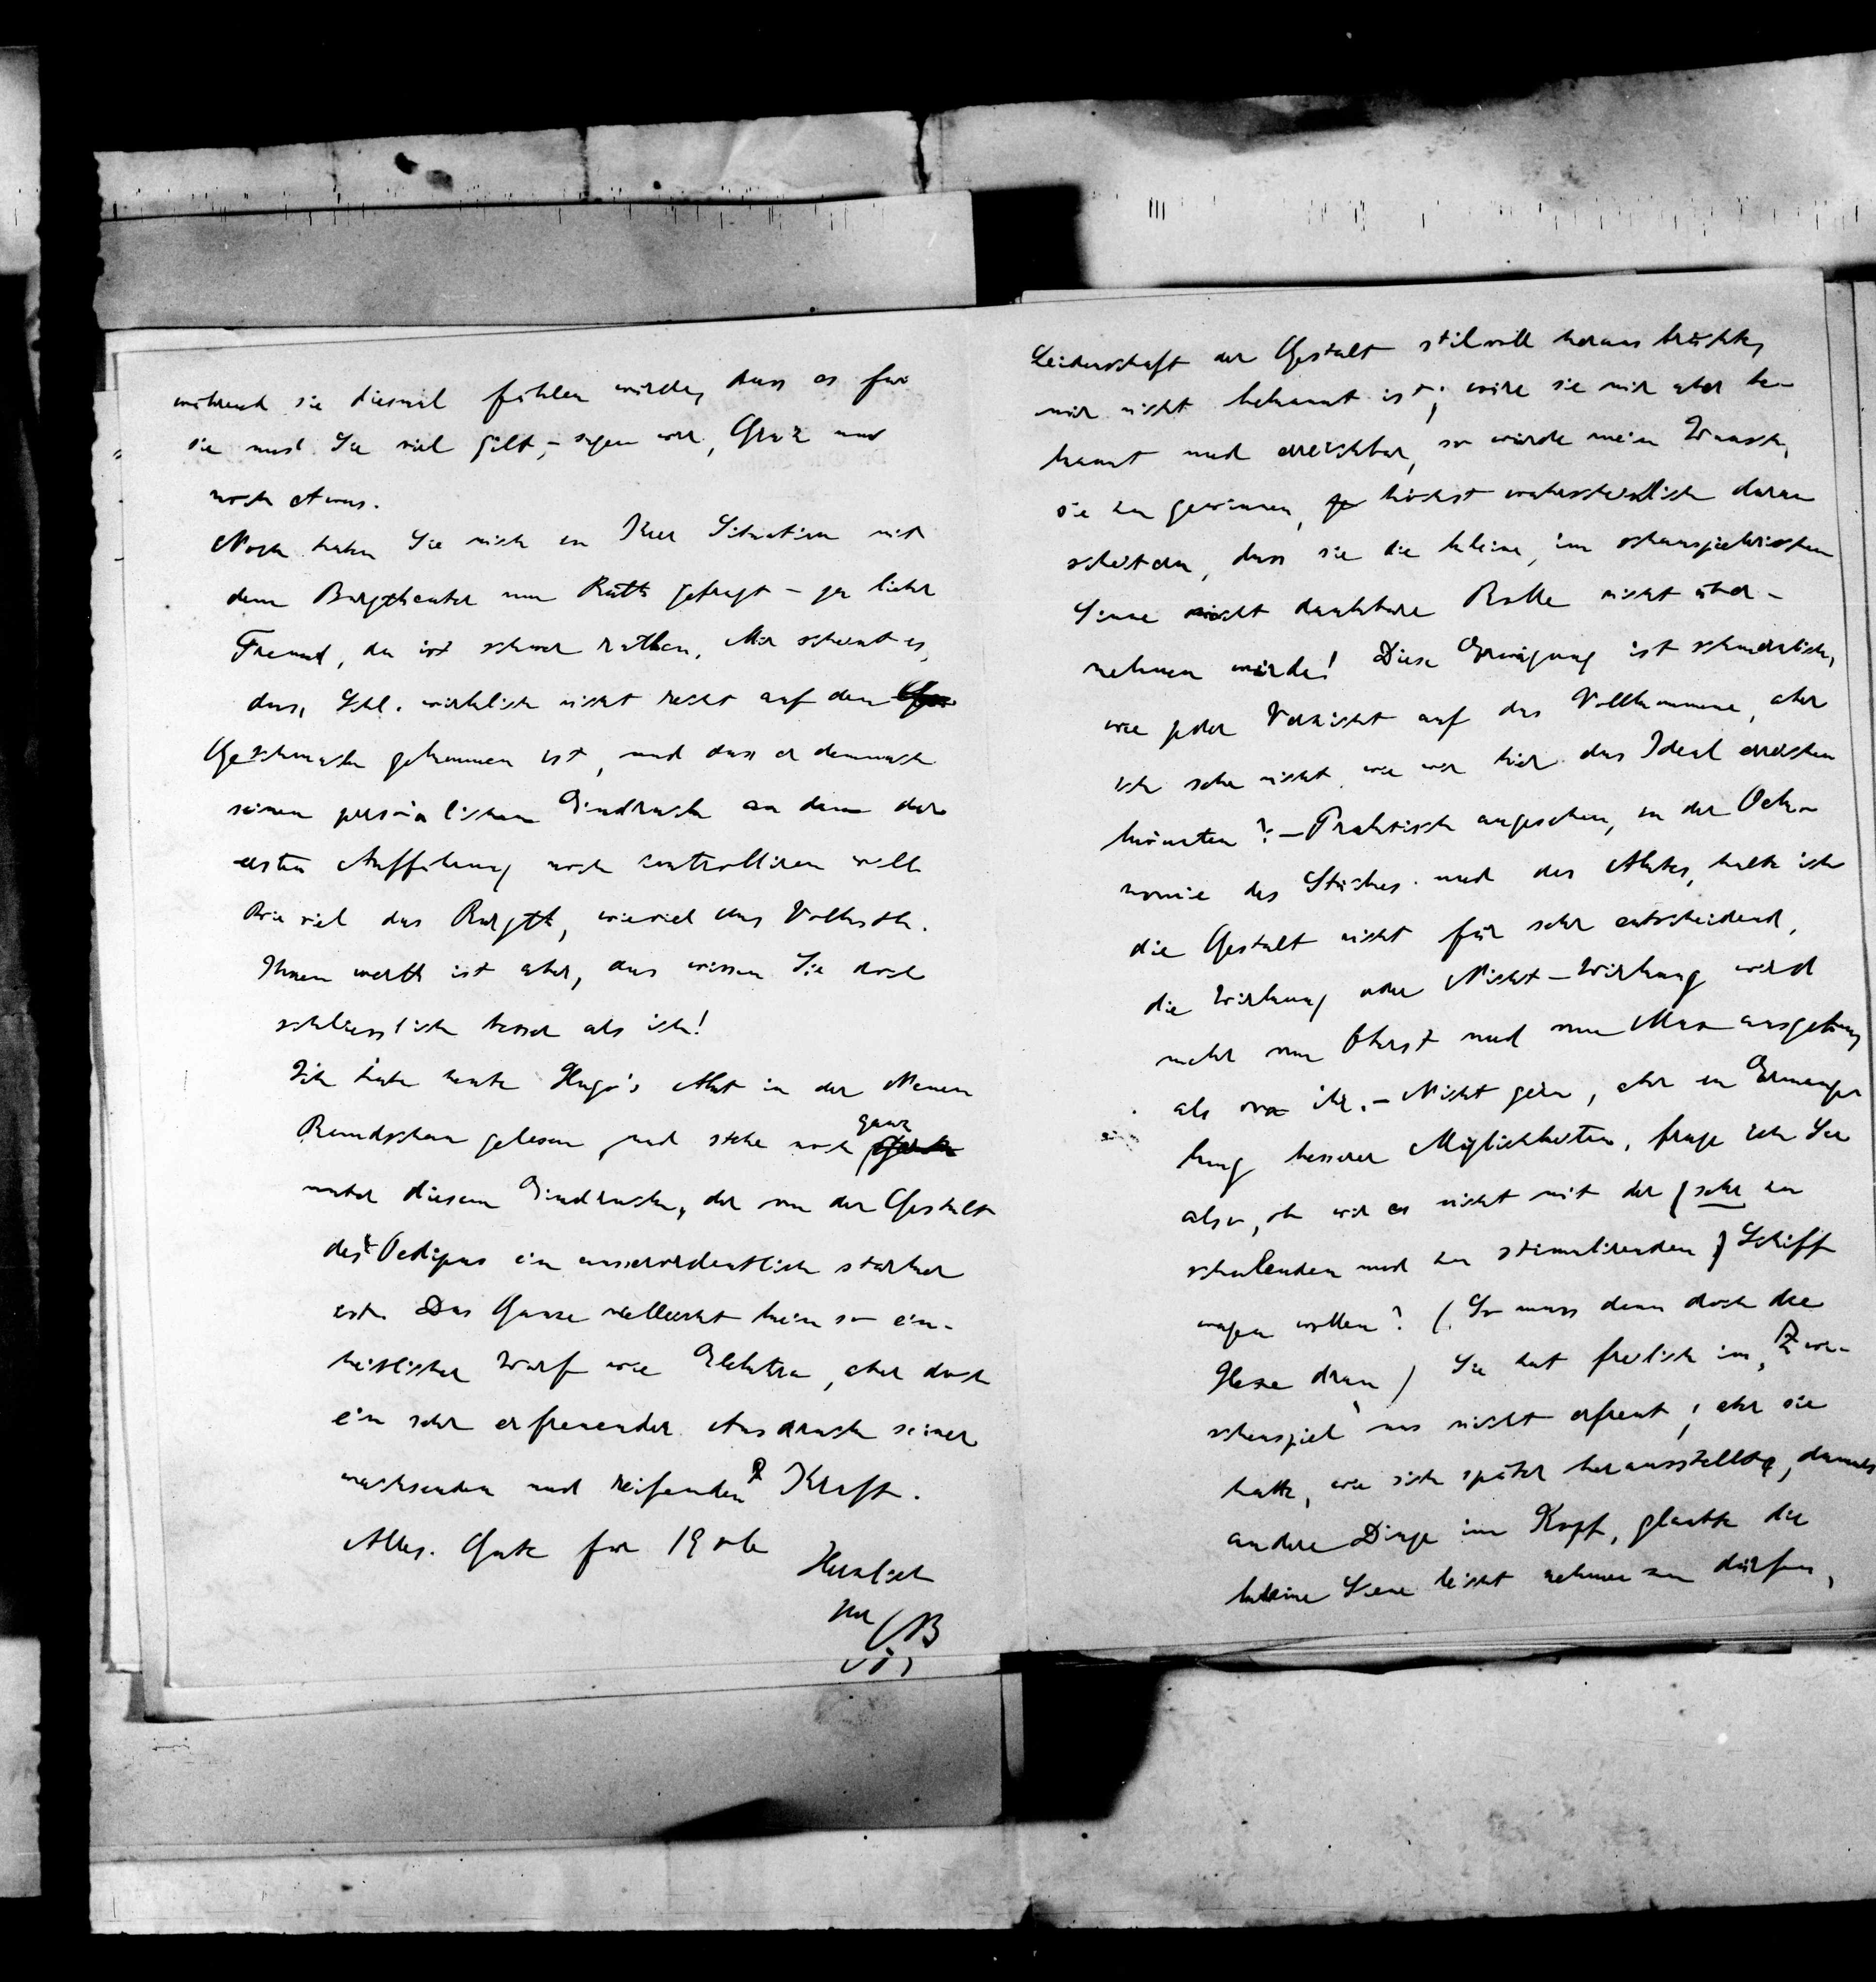 während sie diesmal fühlen würde, dass es für
sie und Sie viel gilt, – sagen wir, Graz und
noch etwas.
Noch haben Sie mich in Ihrer Situation mit
dem Burgtheater um Rath gefragt – ja lieber
Freund, da ist schwer rathen. Mir scheint es,
dass Schl. wirklich nicht recht auf den
Geschmack gekommen ist, und dass er demnach
seinen persönlichen Eindruck an dem der
ersten Aufführung noch controlliren will
Wie viel das Burgth, wieviel das Volksth.
Ihnen werth ist aber, das wissen Sie doch
schliesslich besser als ich!
Ich habe heute Hugo's Akt in der Neuen
Rundschau gelesen und stehe noch ganz
unter diesem Eindrucke, der von der Gestalt
des Oedipus ein ausserordentlich starker
ist. Das Ganze vielleicht kein so ein-
heitlicher Wurf wie Elektra, aber doch
ein sehr erfreuender Ausdruck seiner
wachsenden und reifenden Kraft.
Alles Gute für 1906
Herzlich
Ihr
OB
Leidenschaft der Gestalt stilvoll herausbrächte,
mir nicht bekannt ist; wäre sie mir aber be-
kannt und erreichbar, so würde mein Wunsch,
sie zu gewinnen, höchst wahrscheinlich daran
scheitern, dass sie die kleine, im schauspielerischen
Sinne nicht dankbare Rolle nicht über-
nehmen würde! Diese Erwägung ist schmerzlich,
wie jeder Verzicht auf das Vollkommene, aber
ich sehe nicht, wie wir hier das Ideal erreichen
könnten? – Praktisch angesehen, in der Oeko-
nomie des Stückes und des Aktes, halte ich
die Gestalt nicht für sehr entscheidend,
die Wirkung oder Nicht-Wirkung wird
mehr vom Oberst und von Max ausgehen,
als von ihr. – Nicht gern, aber in Ermange-
lung besserer Möglichkeiten, frage ich Sie
also, ob wir es nicht mit der (sehr zu
schulenden und zu stimulirenden) Schiff
wagen wollen? (So muss denn doch die
Hexe dran) Sie hat freilich im „Zwi-
schenspiel“ uns nicht erfreut; aber sie
hatte, wie sich später herausstellte, damals
andere Dinge im Kopf, glaubte die
kleine Scene leicht nehmen zu dürfen,